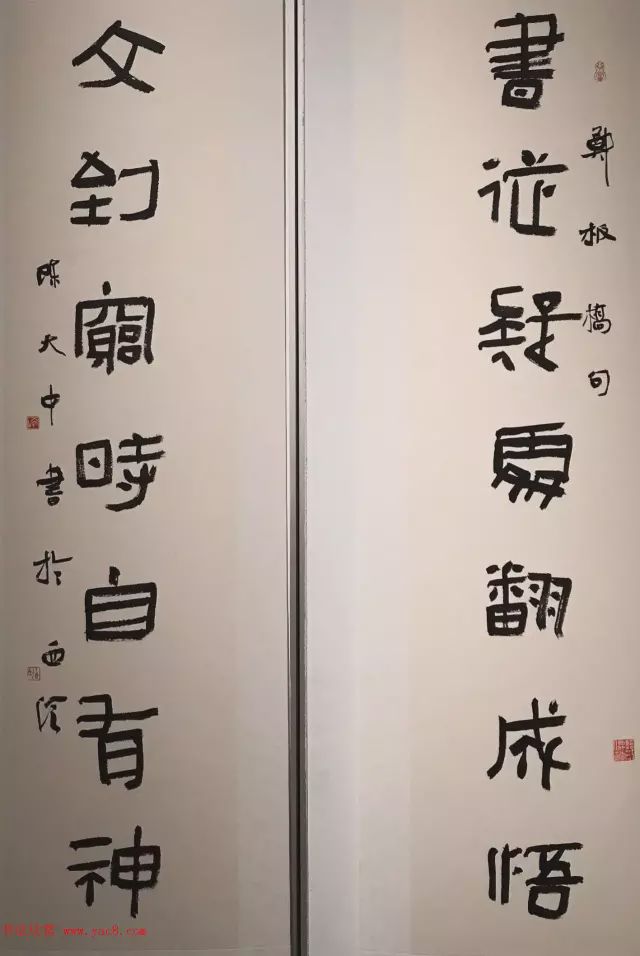 鄭板橋句
書從疑處翻成悟
文到窮時自有神
陳大中書於西泠
书法欣赏 www.yac8.com